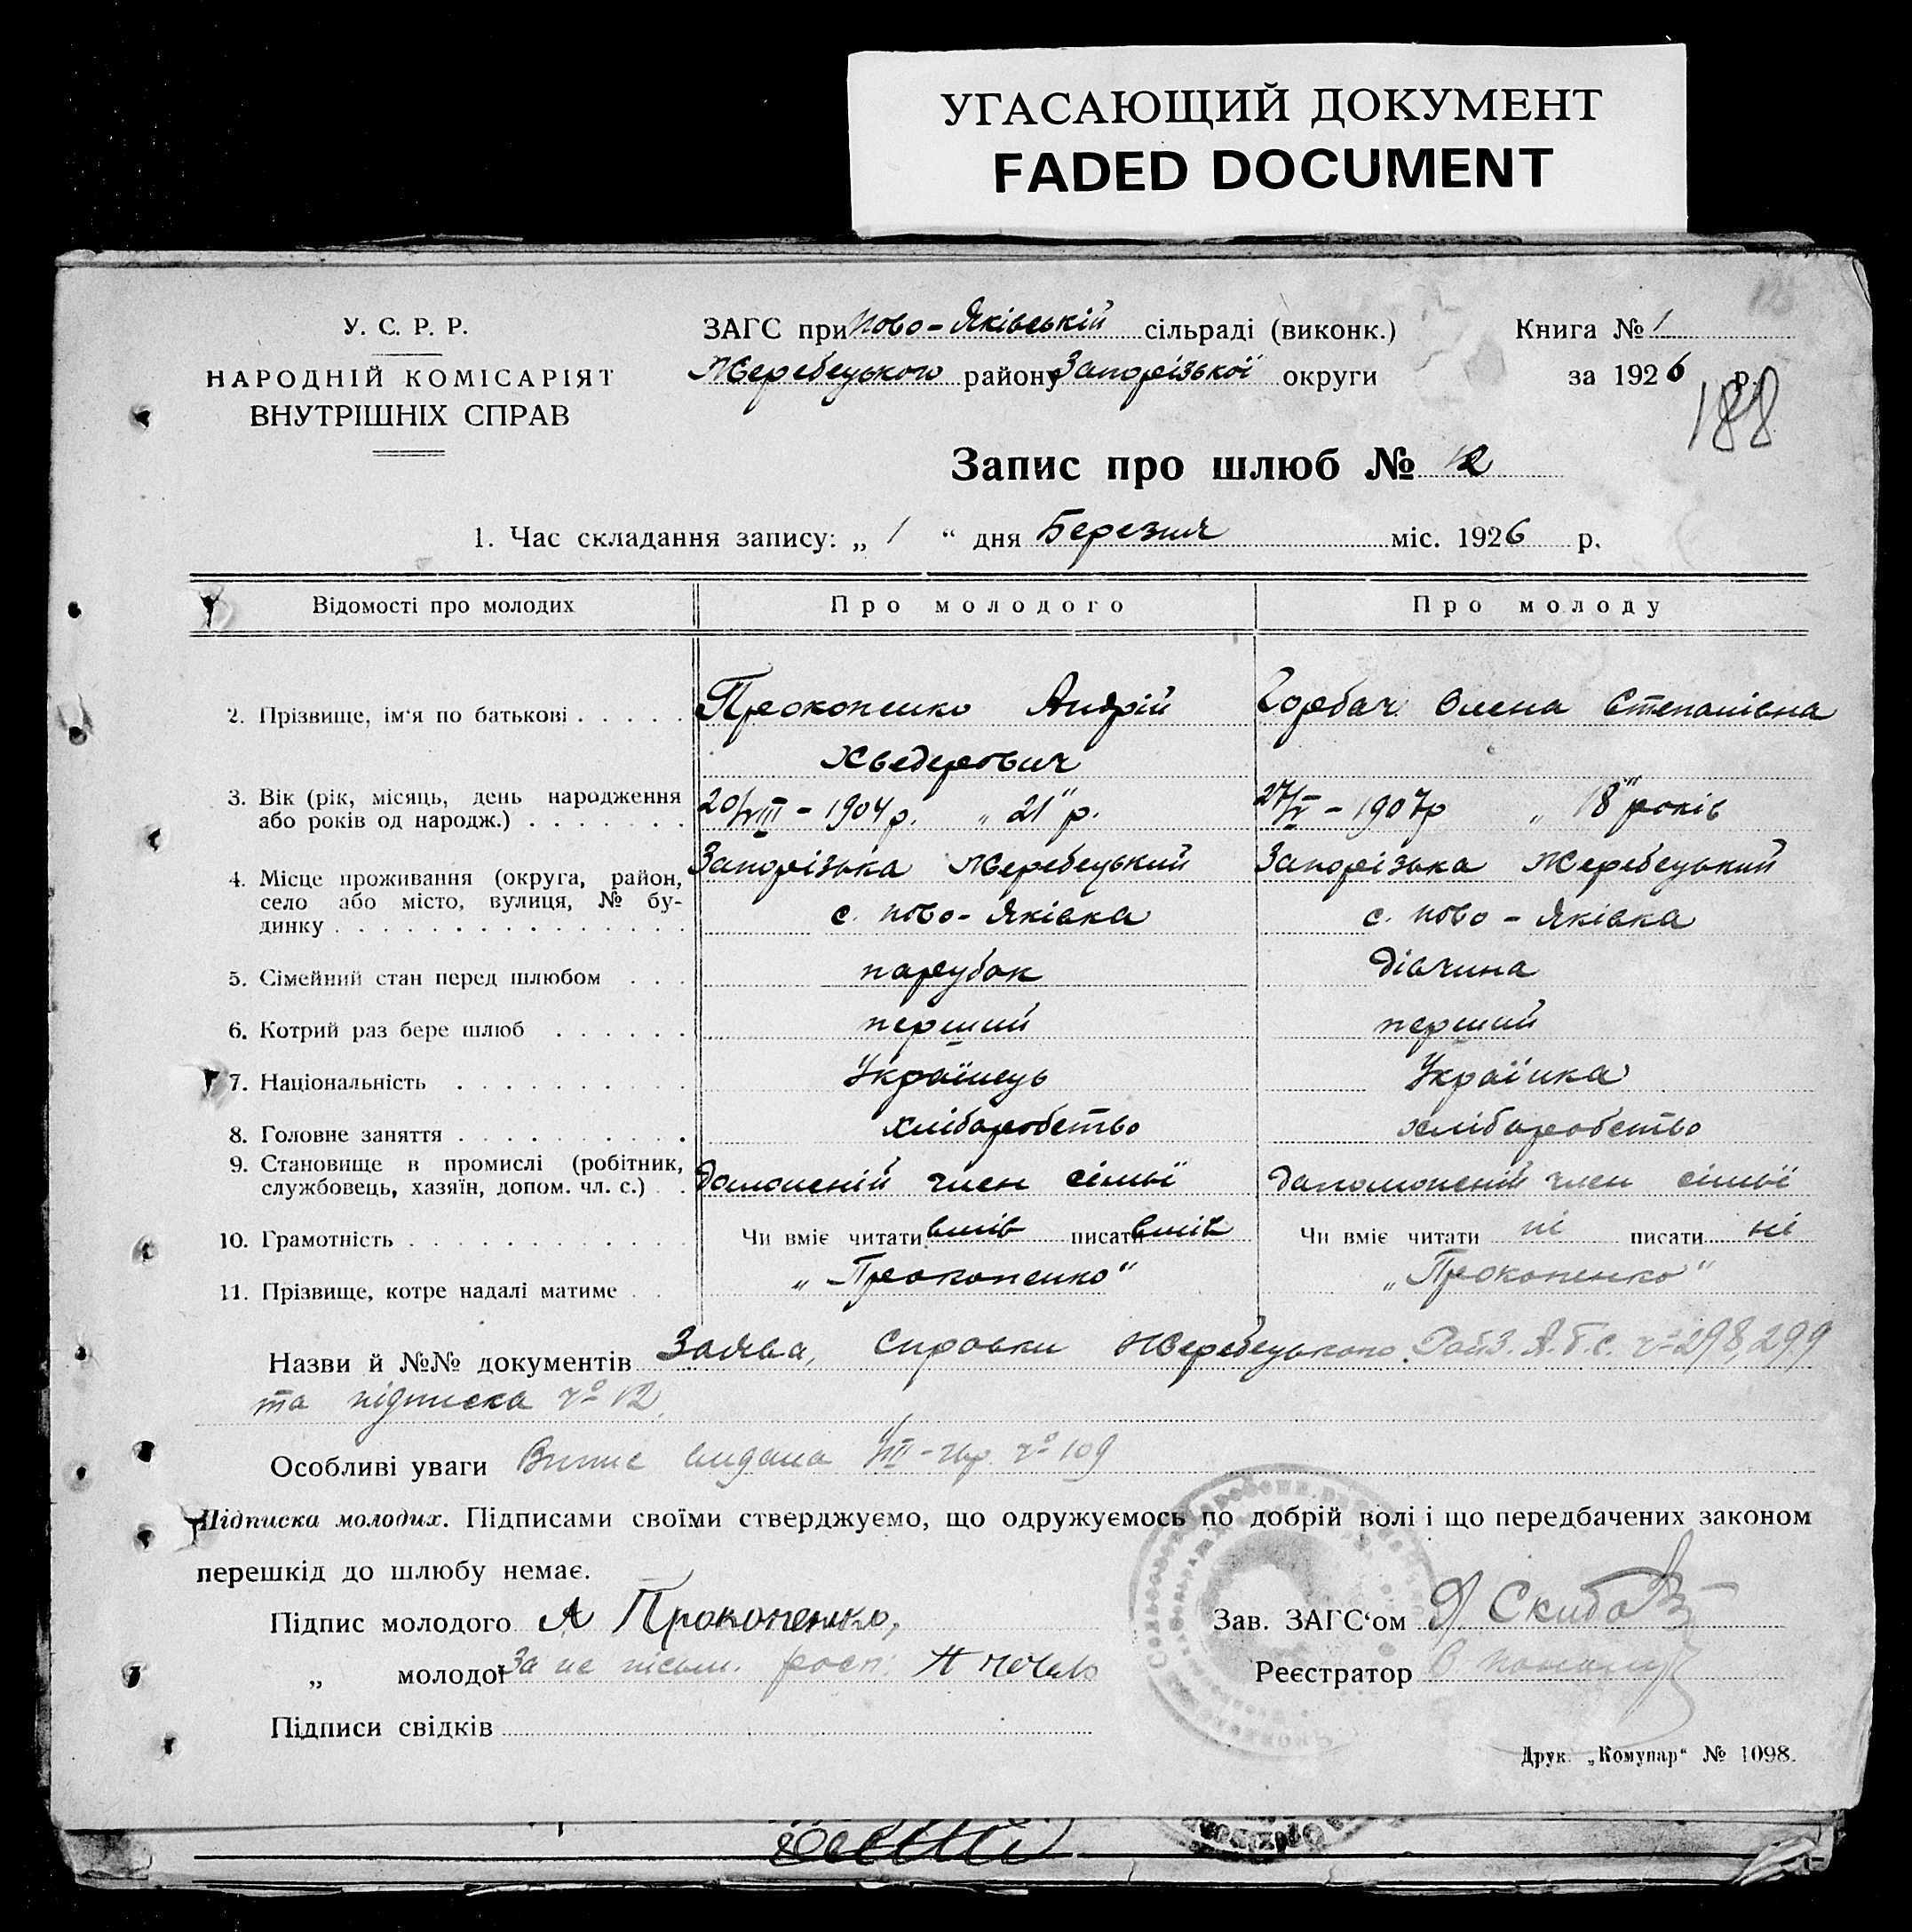 УГАСАЮЩИЙ ДОКУМЕНТ
FADED DOCUMENT
У. С. Р. Р.
НАРОДНІЙ КОМІСАРІЯТ
ВНУТРІШНІХ СПРАВ
ЗАГС при Ново-Яківській сільраді (виконк.)
Жеребецького району Запорізької округи
Книга № 1
за 1926 р.
188
Запис про шлюб № 12
1. Час складання запису: „ 1 “ дня Березня міс. 1926 р.
Відомості про молодих Про молодого Про молоду
2. Прізвище, ім‘я по батькові Прокопенко Андрій Горбач Олена Степанівна
Хведерович
3. Вік (рік, місяць, день народження 20/VIII - 1904 р. „21" р. 27/V - 1907 р „18" років
або років од народж.)
4. Місце проживання (округа, район, Запорізька Жеребецький Запорізька Жеребецький
село або місто, вулиця, № бу- с. Ново-Яківка с. Ново-Яківка
динку
5. Сімейний стан перед шлюбом парубок дівчина
6. Котрий раз бере шлюб перший перший
7. Національність Українець Українка
8. Головне заняття хліборобство хліборобство
9. Становище в промислі (робітник,
службовець, хазяїн, допом. чл. с.) член сімьї член сімьї
10. Грамотність Чи вміє читати вміє писати вміє Чи вміє читати ні писати ні
11. Прізвище, котре надалі матиме „Прокопенко" „Прокопенко"
Назви й №№ документів Заява, Справки Жеребецького 298, 299
та підписка № 12.
Особливі уваги Випис видана № 109
Підписка молодих. Підписами своїми стверджуємо, що одружуємось по добрій волі і що передбачених законом
перешкід до шлюбу немає.
Підпис молодого А Прокопенко, Зав. ЗАГС‘ом Скиба
„ молодої За не письм. росп. Реєстратор
Підписи свідків
Друк. „Комунар“ № 1098.